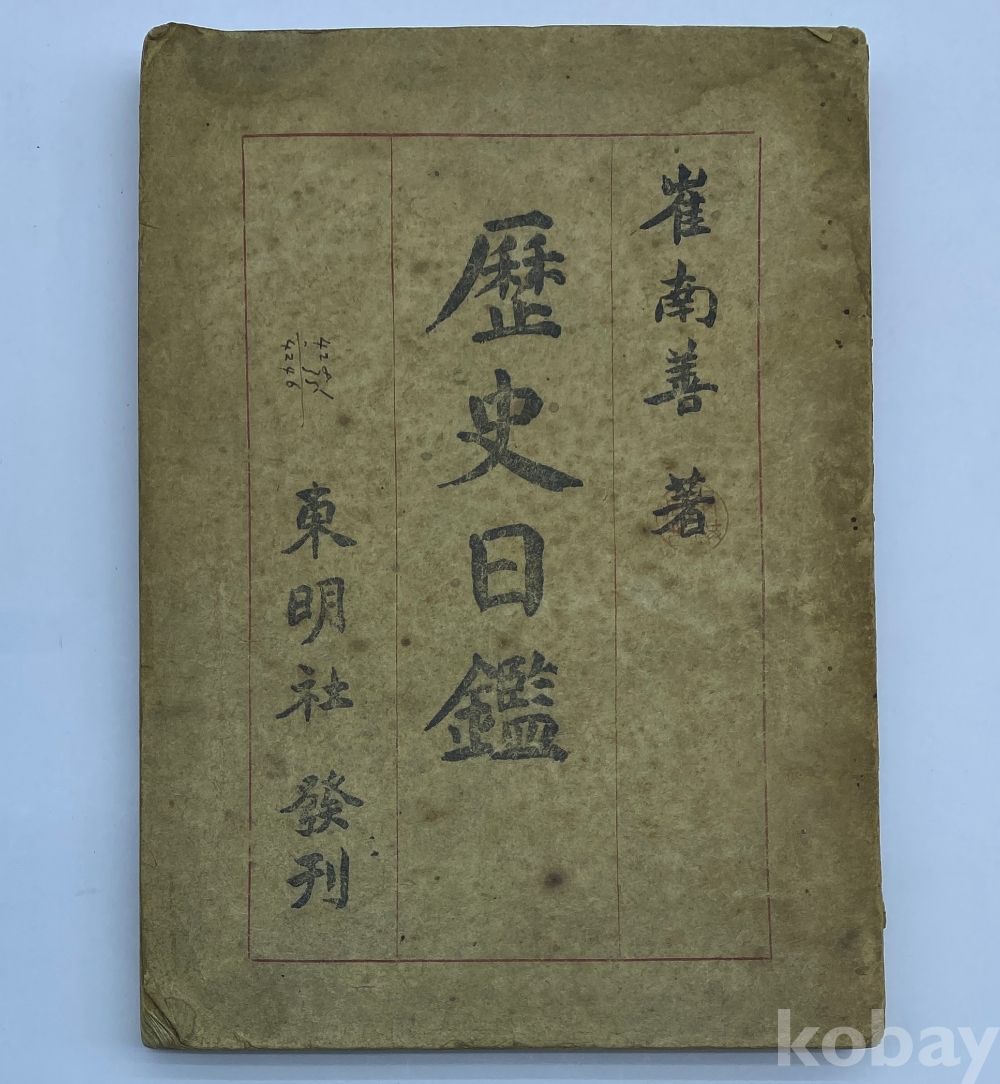 崔南善 著
歷史日鑑
東明社 發刊
4246
kobay